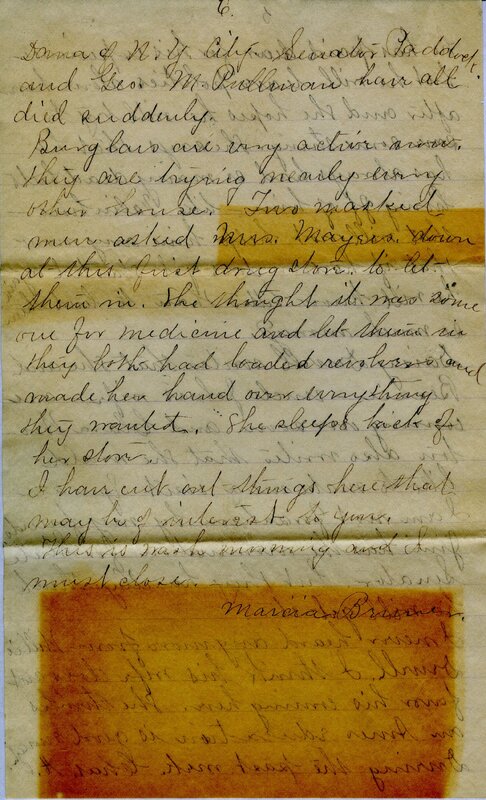 6.
Dana of N.Y. City, Senator Paddock
and Geo M Pullman have all
died suddenly.
Burglars are very active now.
they are trying nearly every
other house. Two masked
men asked Mrs. Mayers down
at this first drug store to let
them in. She thought it was some
one for medicine and let them in
they both had loaded revolvers and
made her hand over everything
they wanted. She sleeps back of
her store
I have cut out things here that
may be of interest to you.
This is wash morning and I
must close.
Marcia